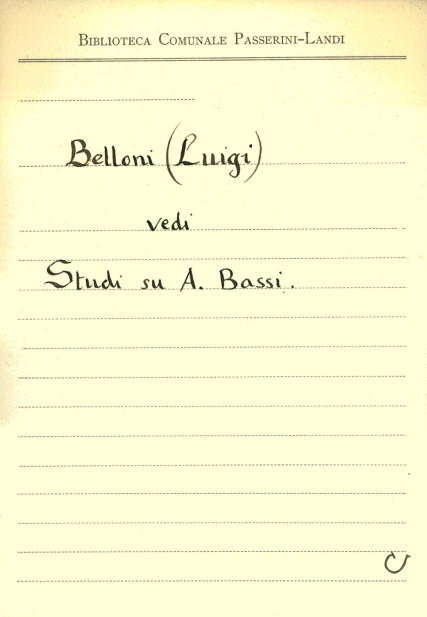 BIBLIOTECA COMUNALE PASSERINI-LANDI
Belloni (Luigi)
vedi
Studi su A. Bassi.